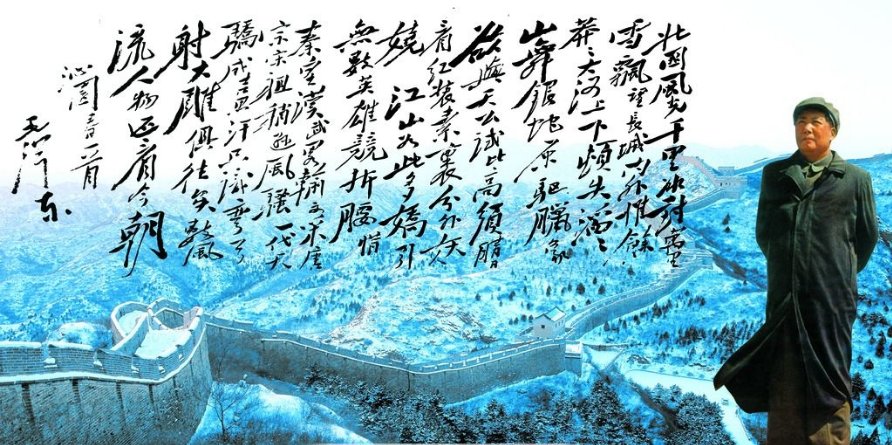 北国風光千里冰封萬里
雪飄望長城内外惟餘
莽〻大河上下頓失滔〻
山舞銀蛇原驅臘象
欲與天公試比高須晴日
看紅裝素裹分外妖
嬈 江山如此多嬌引
無數英雄競折腰惜
秦皇漢武略輸文采唐
宗宋祖稍遜風騷一代天
驕成吉思汗只識彎弓
射大雕俱往矣數風
流人物还看今朝
沁園春一首
毛泽东